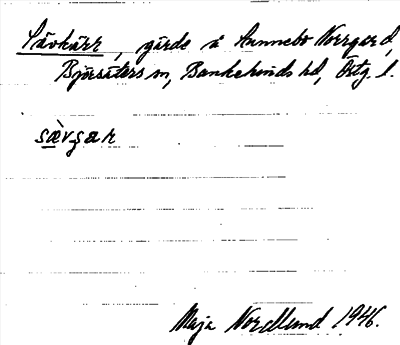 Sävkärr, gärde å Sunnebo Norrgård,
Björsäters sn, Bankekinds hd, Östg. l.
sæ̀vʒaʀ
Maja Nordlund 1946.